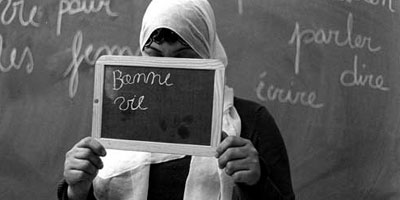 Pour
les femmes
parler
dire
écrire
Bonne
vie